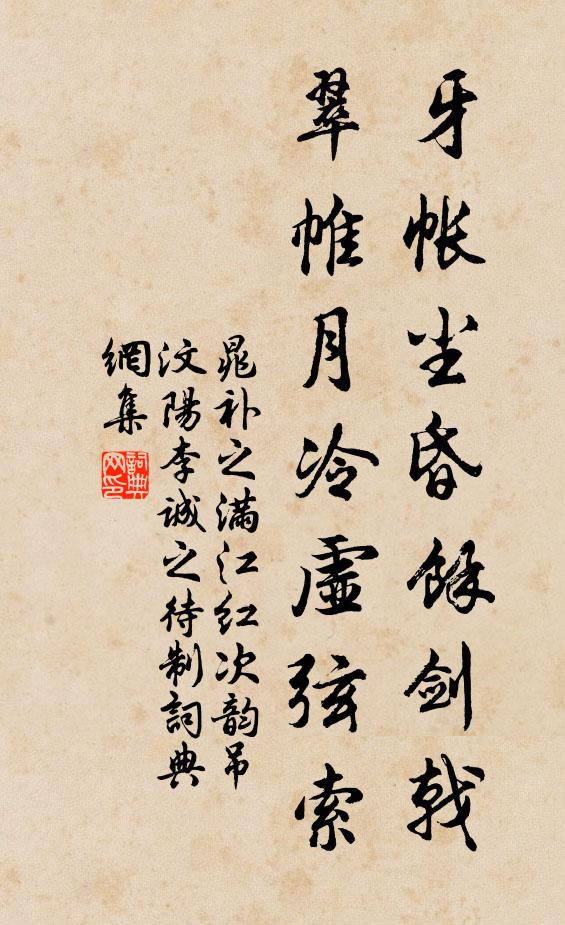 牙帐尘昏餘剑戟
翠帷月冷虚弦索
晁补之满江红次韵吊
汶陽李诚之待制詞典
網集
詞典
网印